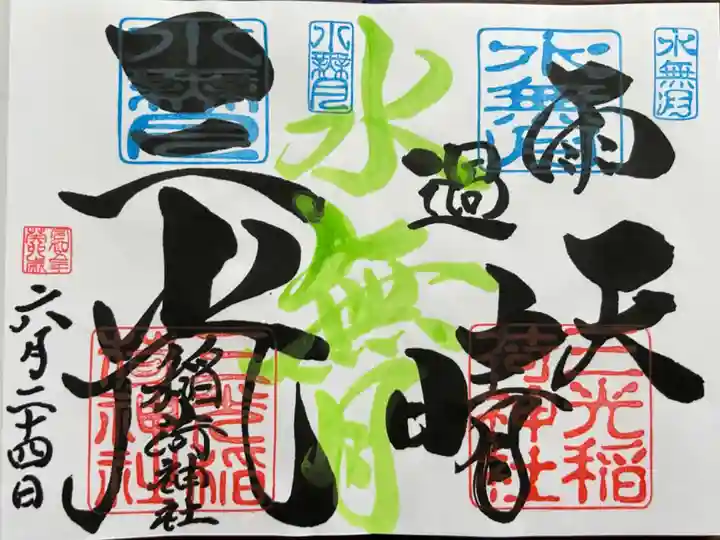 水無月
水無月
雨過天晴
水無月
水無月
水無月
三光
稲荷神社
三光稲荷神社
三光稲荷神社
六月二十四日